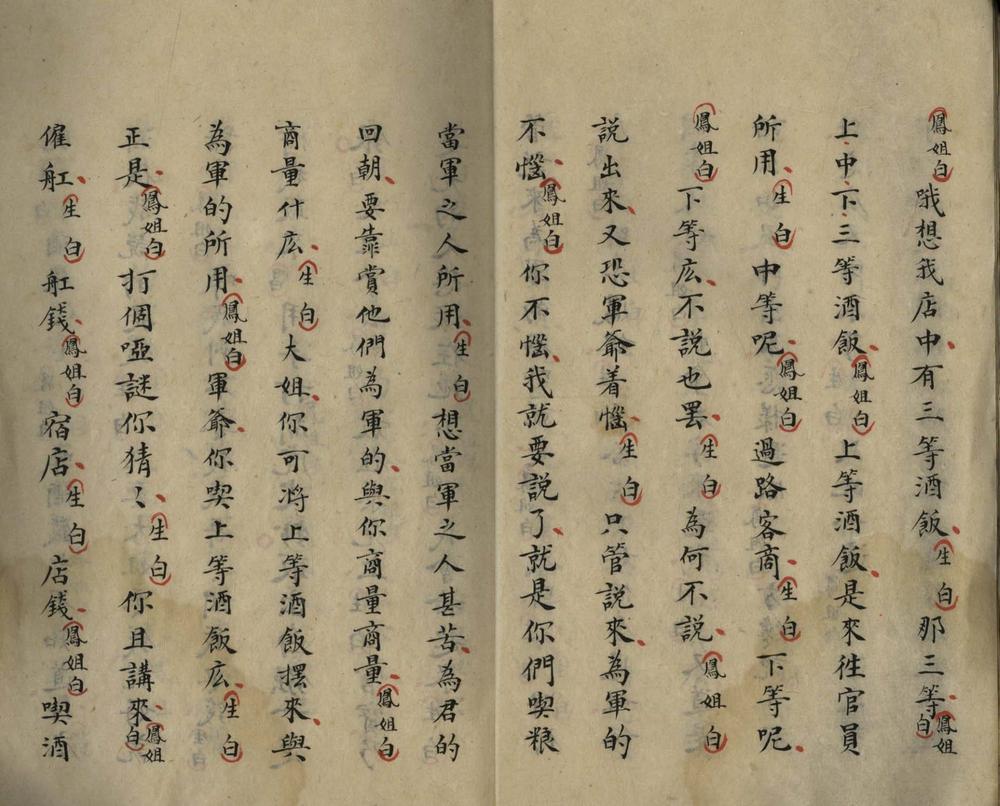 鳳姐白哦想我店中有三等酒飯生白那三等鳳姐白
上中下三等酒飯鳳姐白上等酒飯是來往官員
所用生白中等呢鳳姐白過路客商生白下等呢
鳳姐白下等庅不說也罷生白為何不說鳳姐白
說出來又恐軍爺着惱生白只管説來為軍的
不惱鳳姐白你不惱我就要説了就是你們喫粮
當軍之人所用生白想當軍之人甚苦為君的
回朝要靠賞他們為軍的與你商量商量鳳姐白
商量什庅生白大姐你可將上等酒飯摆來與
為軍的所用鳳姐白軍爺你喫上等酒飯庅生白
正是鳳姐白打個啞謎你猜〻生白你且講來鳳姐白
僱舡生白舡錢鳳姐白宿店生白店錢鳳姐白喫酒